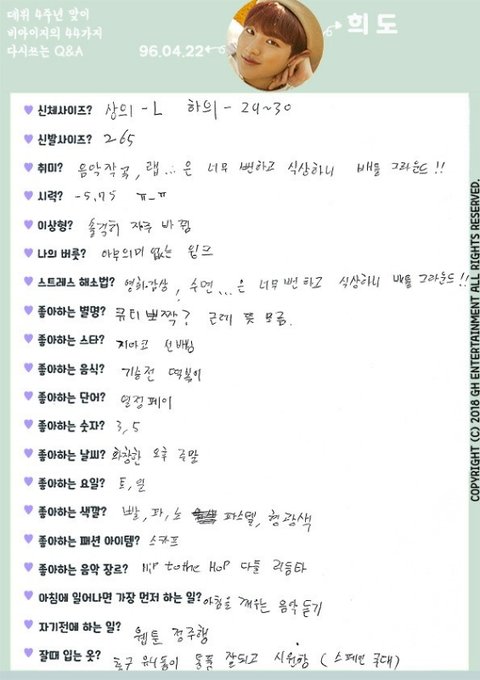 데뷔 4주년 맞이
비아이지의 44가지
다시쓰는 Q&A
96.04.22
희도
신체사이즈? 상의 - L 하의 - 29~30
신발사이즈? 265
취미? 음악작곡, 랩...은 너무 뻔하고 식상하니 배틀 그라운드!!
시력? -5.75 ㅠ_ㅠ
이상형? 솔직히 자주 바뀜
나의 버릇? 아무의미 없는 윙크
스트레스 해소법? 영화감상, 수면...은 너무 뻔하고 식상하니 배틀그라운드!!
좋아하는 별명? 큐티뽀짝? 근데 뜻 모름.
좋아하는 스타? 지아코 선배님
좋아하는 음식? 떡볶이
좋아하는 단어? 열정페이
좋아하는 숫자? 3, 5
좋아하는 날씨? 화창한 오후 주말
좋아하는 요일? 토, 일
좋아하는 색깔? 빨, 파, 노 파스텔, 형광색
좋아하는 패션 아이템? 스카프
좋아하는 음악 장르? Hip to the Hop 다틀 리듬타
아침에 일어나면 가장 먼저 하는 일? 아침을 깨우는 음악 듣기
자기전에 하는 일? 웹툰 정주행
잘때 입는 옷? 축구 유니폼이 통풍 잘되고 시원함 (스페인 국대)
COPYRIGHT (C) 2018 GH ENTERTAINMENT ALL RIGHTS RESERVED.